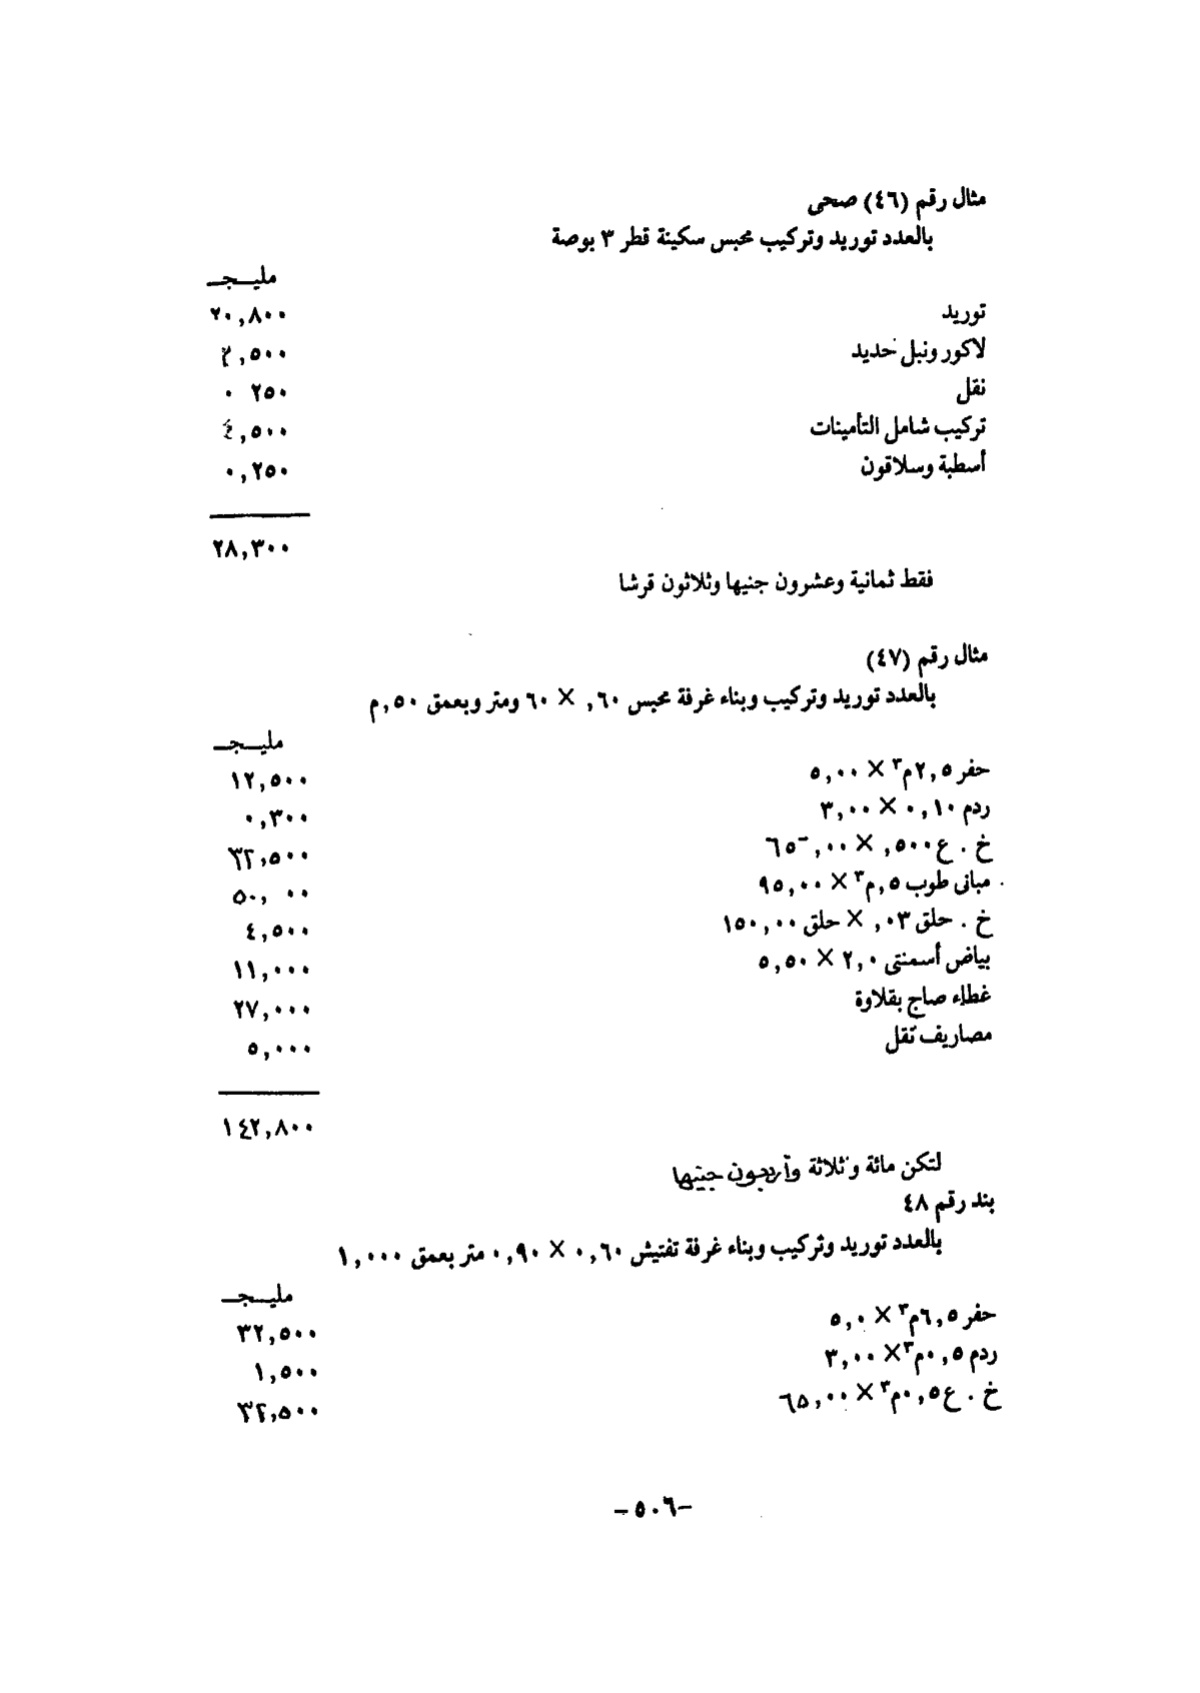 مثال رقم (٤٦) صحى
بالعدد توريد وتركيب محبس سكينة قطر ٣ بوصة
مليـــجـــ
توريد ٢٠,٨٠٠
لاكور ونبل حديد ٢,٥٠٠
نقل ٠ ٢٥٠
تركيب شامل التأمينات ٤,٥٠٠
أسطبة وسلاقون ٠,٢٥٠
٢٨,٣٠٠
فقط ثمانية وعشرون جنيها وثلاثون قرشا
مثال رقم (٤٧)
بالعدد توريد وتركيب وبناء غرفة محبس ٦٠, × ٦٠ ومتر وبعمق ٥٠,م
مليـــجـــ
حفر ٢,٥م٣ × ٥,٠٠ ١٢,٥٠٠
ردم ٠,١٠ × ٣,٠٠ ٠,٣٠٠
خ . ع ٥٠٠, × ٦٥,٠٠ ٣٢,٥٠٠
مبانى طوب ٥,م٣ × ٩٥,٠٠ ٥٠, ٠٠
خ . حلق ٠٣, × حلق ١٥٠,٠٠ ٤,٥٠٠
بياض أسمنتى ٢,٠ × ٥,٥٠ ١١,٠٠٠
غطاء صاج بقلاوة ٢٧,٠٠٠
مصاريف نقل ٥,٠٠٠
١٤٢,٨٠٠
لتكن مائة وثلاثة وأربعون جنيها
بند رقم ٤٨
بالعدد توريد وتركيب وبناء غرفة تفتيش ٠,٦٠ × ٠,٩٠ متر بعمق ١,٠٠٠
مليـــجـــ
حفر ٦,٥م٣ × ٥,٠ ٣٢,٥٠٠
ردم ٠,٥م٣ × ٣,٠٠ ١,٥٠٠
خ . ع ٠,٥م٣ × ٦٥,٠٠ ٣٢,٥٠٠
–٥٠٦–